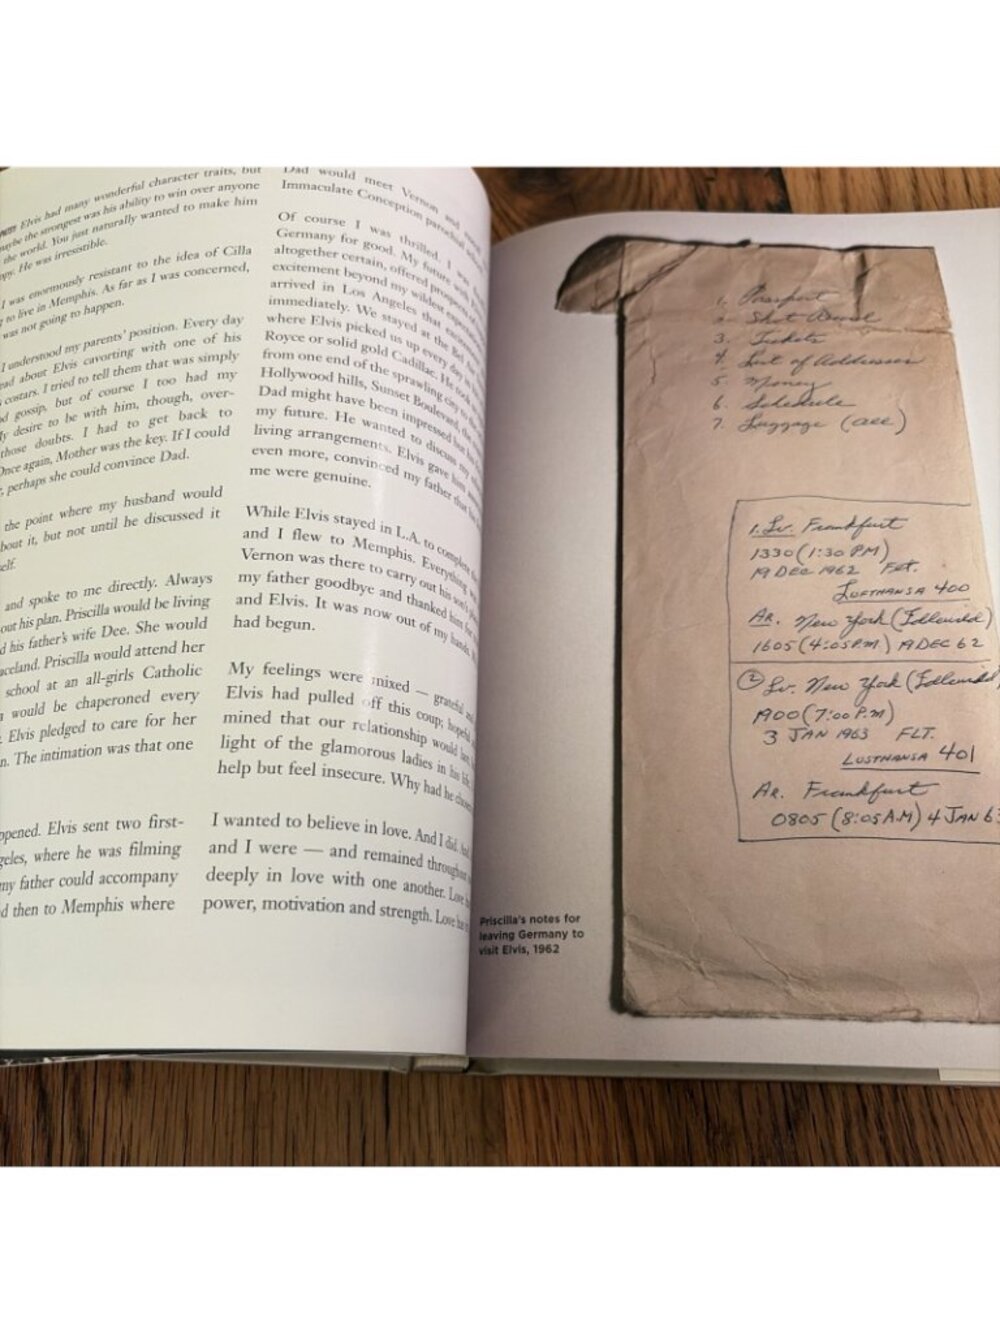 Elvis had many wonderful character traits, but
maybe the strongest was his ability to win over anyone
the world. You just naturally wanted to make him
He was irresistible.
I was enormously resistant to the idea of Cilla
to live in Memphis. As far as I was concerned,
was not going to happen.
I understood my parents' position. Every day
about Elvis cavorting with one of his
costars. I tried to tell them that was simply
gossip, but of course I too had my
desire to be with him, though, over-
those doubts. I had to get back to
Once again, Mother was the key. If I could
, perhaps she could convince Dad.
the point where my husband would
about it, but not until he discussed it
and spoke to me directly. Always
out his plan. Priscilla would be living
his father's wife Dee. She would
Priscilla would attend her
school at an all-girls Catholic
would be chaperoned every
Elvis pledged to care for her
The intimation was that one
Elvis sent two first-
where he was filming
my father could accompany
then to Memphis where
Dad would meet Vernon and
Immaculate Conception parochial
Of course I was thrilled. I was
Germany for good. My future with
altogether certain, offered prospects
excitement beyond my wildest
arrived in Los Angeles that
immediately. We stayed at the Bel Air
where Elvis picked us up every day in
Royce or solid gold Cadillac. He took
from one end of the sprawling city to
Hollywood hills, Sunset Boulevard, the
Dad might have been impressed but
my future. He wanted to discuss my
living arrangements. Elvis gave him
even more, convinced my father that
me were genuine.
While Elvis stayed in L.A. to complete
and I flew to Memphis. Everything
Vernon was there to carry out his son's
my father goodbye and thanked him for
and Elvis. It was now out of my hands.
had begun.
My feelings were mixed — grateful
Elvis had pulled off this coup; hopeful
mined that our relationship would last;
light of the glamorous ladies in his life,
help but feel insecure. Why had he chosen
I wanted to believe in love. And I did.
and I were — and remained throughout
deeply in love with one another. Love
power, motivation and strength. Love
Priscilla's notes for
leaving Germany to
visit Elvis, 1962
1. Passport
2. Shot Record
3. Tickets
4. List of Addresses
5. Money
6. Schedule
7. Luggage (all)
1. Lv. Frankfurt
1330 (1:30 PM)
19 DEC 1962 FLT.
LUFTHANSA 400
AR. New York (Idlewild)
1605 (4:05 P.M.) 19 DEC 62
② Lv. New York (Idlewild
1900 (7:00 P.M)
3 JAN 1963 FLT.
LUSTHANSA 401
AR. Frankfurt
0805 (8:05 A.M) 4 JAN 63